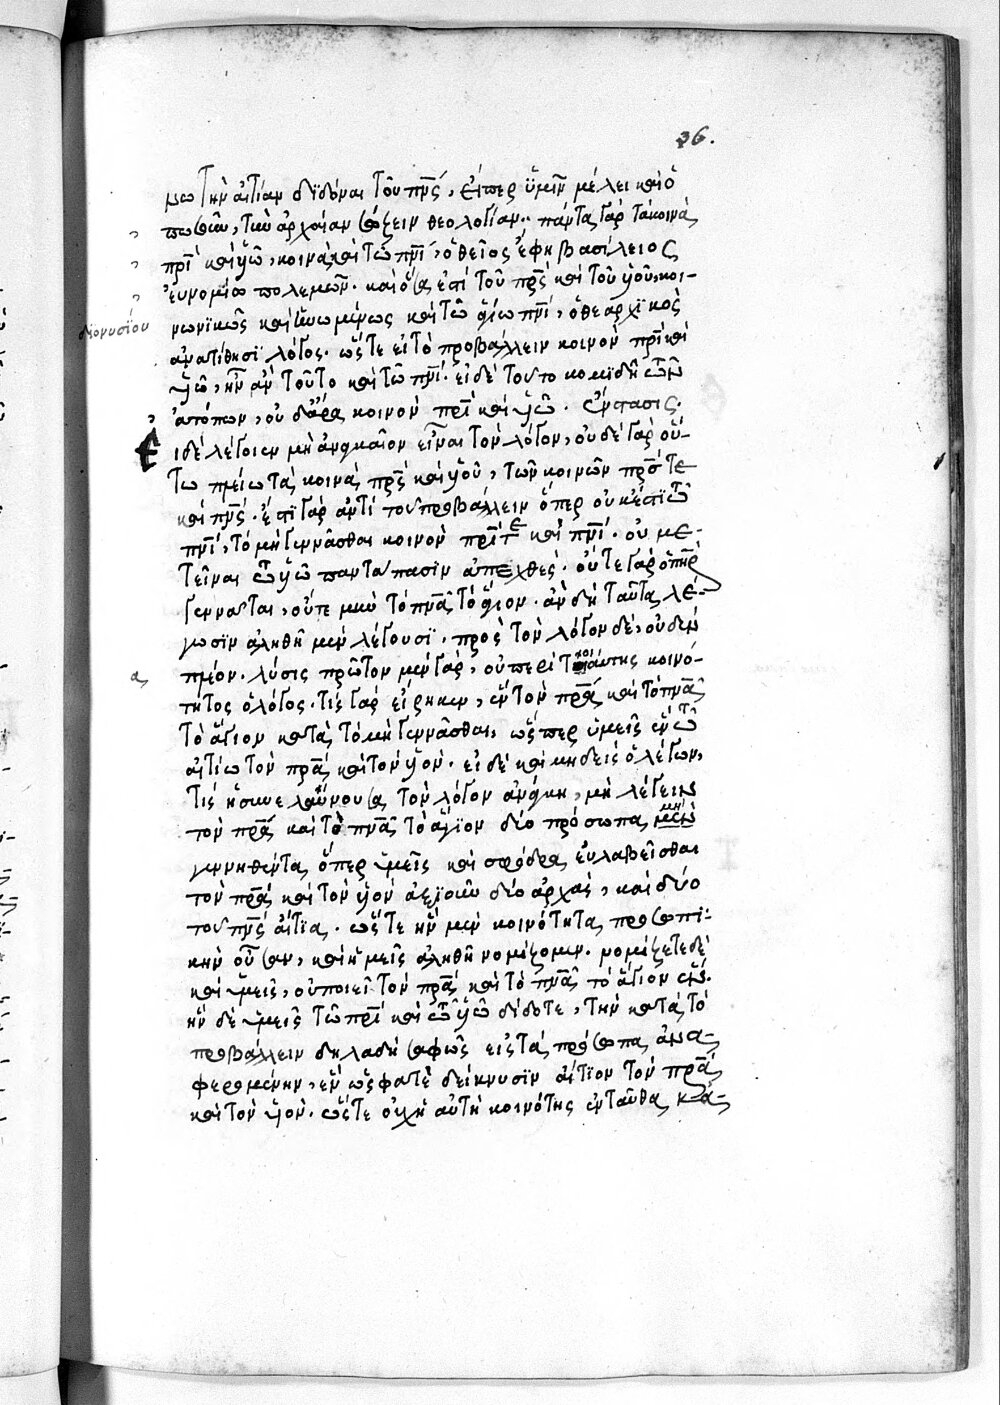 36.
μω τὴν αἰτίαν διδόναι τοῦ πνς, εἴπερ ὑμῖν μέλει καὶ ὁ
πωσοῦν, τὴν ἀρχαίαν σώζειν θεολογίαν. πάντα γὰρ τὰ κοινὰ
πρι καὶ υἱῶ, κοινὰ καὶ τῶ πνι, ὁ θεῖος ἔφη βασίλειος
εὐνομίω πολεμῶν. καὶ ὅσα ἐστὶ τοῦ πρς καὶ τοῦ υἱοῦ, κοι-
διονυσίου
νωνικῶς καὶ ἡνωμένως καὶ τῶ ἁγίω πνι, ὁ θεαρχικὸς
ἀνατίθησι λόγος. ὥστε εἰ τὸ προβάλλειν κοινὸν πρι καὶ
υἱῶ, ἦν ἂν τοῦτο καὶ τῶ πνι. εἰ δὲ τοῦτο κομιδῆ τῶν
ἀτόπων, οὐδ' ἄρα κοινὸν πρι καὶ υἱῶ. ἔνστασις.
Ε ἰ δὲ λέγοιεν μὴ ἀναγκαῖον εἶναι τὸν λόγον, οὐδὲ γὰρ οὕ-
τω ποιεῖν τὰ κοινὰ πρς καὶ υἱοῦ, τῶν κοινῶν πρς τε
καὶ πνς. ἔστι γὰρ ἀντὶ τοῦ προβάλλειν ὅπερ οὐκ ἔστι τῶ
πνι, τὸ μὴ γεννᾶσθαι κοινὸν πρι τε καὶ πνι. οὐ με-
τεῖναι τῶ υἱῶ παντάπασιν ἀπεχθές. οὔτε γὰρ ὁ πηρ
γεννᾶται, οὔτε μὴν τὸ πνα τὸ ἅγιον. ἂν δὴ ταῦτα λέ-
γωσιν ἀληθῆ μὲν λέγουσι, πρὸς τὸν λόγον δὲ, οὐδὲν
α
πλέον. λύσις πρῶτον μὲν γὰρ, οὐ περὶ τοιαύτης κοινό-
τητος ὁ λόγος. τίς γὰρ εἴρηκεν, ἓν τὸν πρα καὶ τὸ πνα
τὸ ἅγιον κατὰ τὸ μὴ γεννᾶσθαι, ὥσπερ ὑμεῖς ἓν τῶ
αἰτίω τὸν πρα καὶ τὸν υἱόν. εἰ δὲ καὶ μηδεὶς ὁ λέγων,
τίς ἡ συνελαύνουσα τὸν λόγον ἀνάγκη, μὴ λέγειν
τὸν πρα καὶ τὸ πνα τὸ ἅγιον δύο πρόσωπα μὴ
γεννηθέντα, ὅπερ ὑμεῖς καὶ σφόδρα εὐλαβεῖσθαι
τὸν πρα καὶ τὸν υἱὸν ἀξιοῦν δύο ἀρχὰς, καὶ δύο
τοῦ πνς αἴτια. ὥστε ἣν μὲν κοινότητα προσωπι-
κὴν οὖσαν, καὶ ἡμεῖς ἀληθῆ νομίζομεν. νομίζετε δὲ
καὶ ὑμεῖς, οὐ ποιεῖ τὸν πρα καὶ τὸ πνα τὸ ἅγιον ἕν.
ἣν δὲ ὑμεῖς τῶ πρι καὶ τῶ υἱῶ δίδοτε, τὴν κατὰ τὸ
προβάλλειν δηλαδὴ σαφῶς εἰς τὰ πρόσωπα ἀνα-
φερομένην, ἓν ὥς φατε δείκνυσιν αἴτιον τὸν πρα
καὶ τὸν υἱόν. ὥστε οὐχ ἡ αὐτὴ κοινότης ἐνταῦθα, κά-